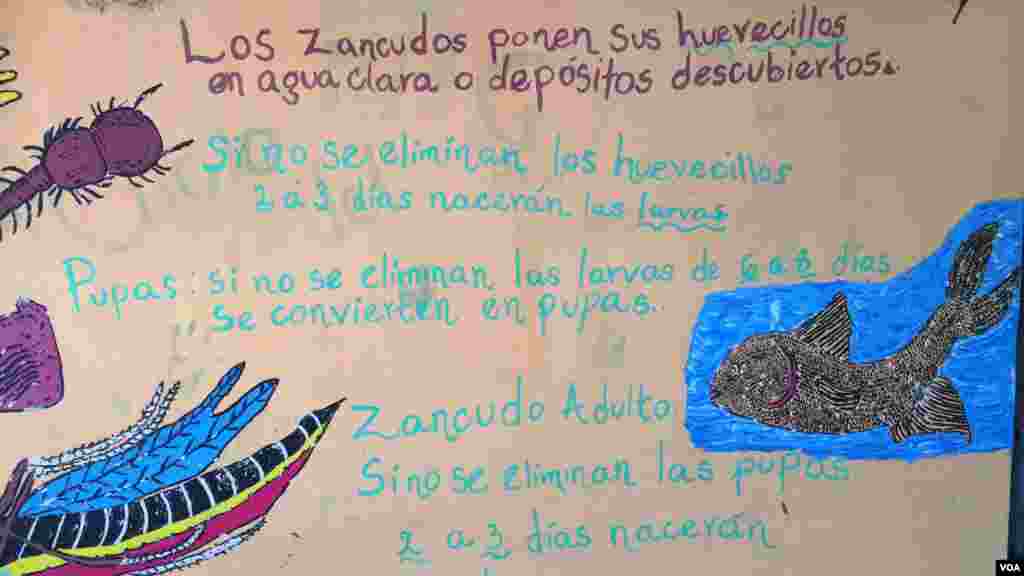 Los Zancudos ponen sus huevecillos
en agua clara o depósitos descubiertos.
Si no se eliminan los huevecillos
2 a 3 días nacerán las larvas
Pupas: si no se eliminan las larvas de 6 a 8 días
se convierten en pupas.
Zancudo Adulto
Si no se eliminan las pupas
2 a 3 días nacerán
VOA